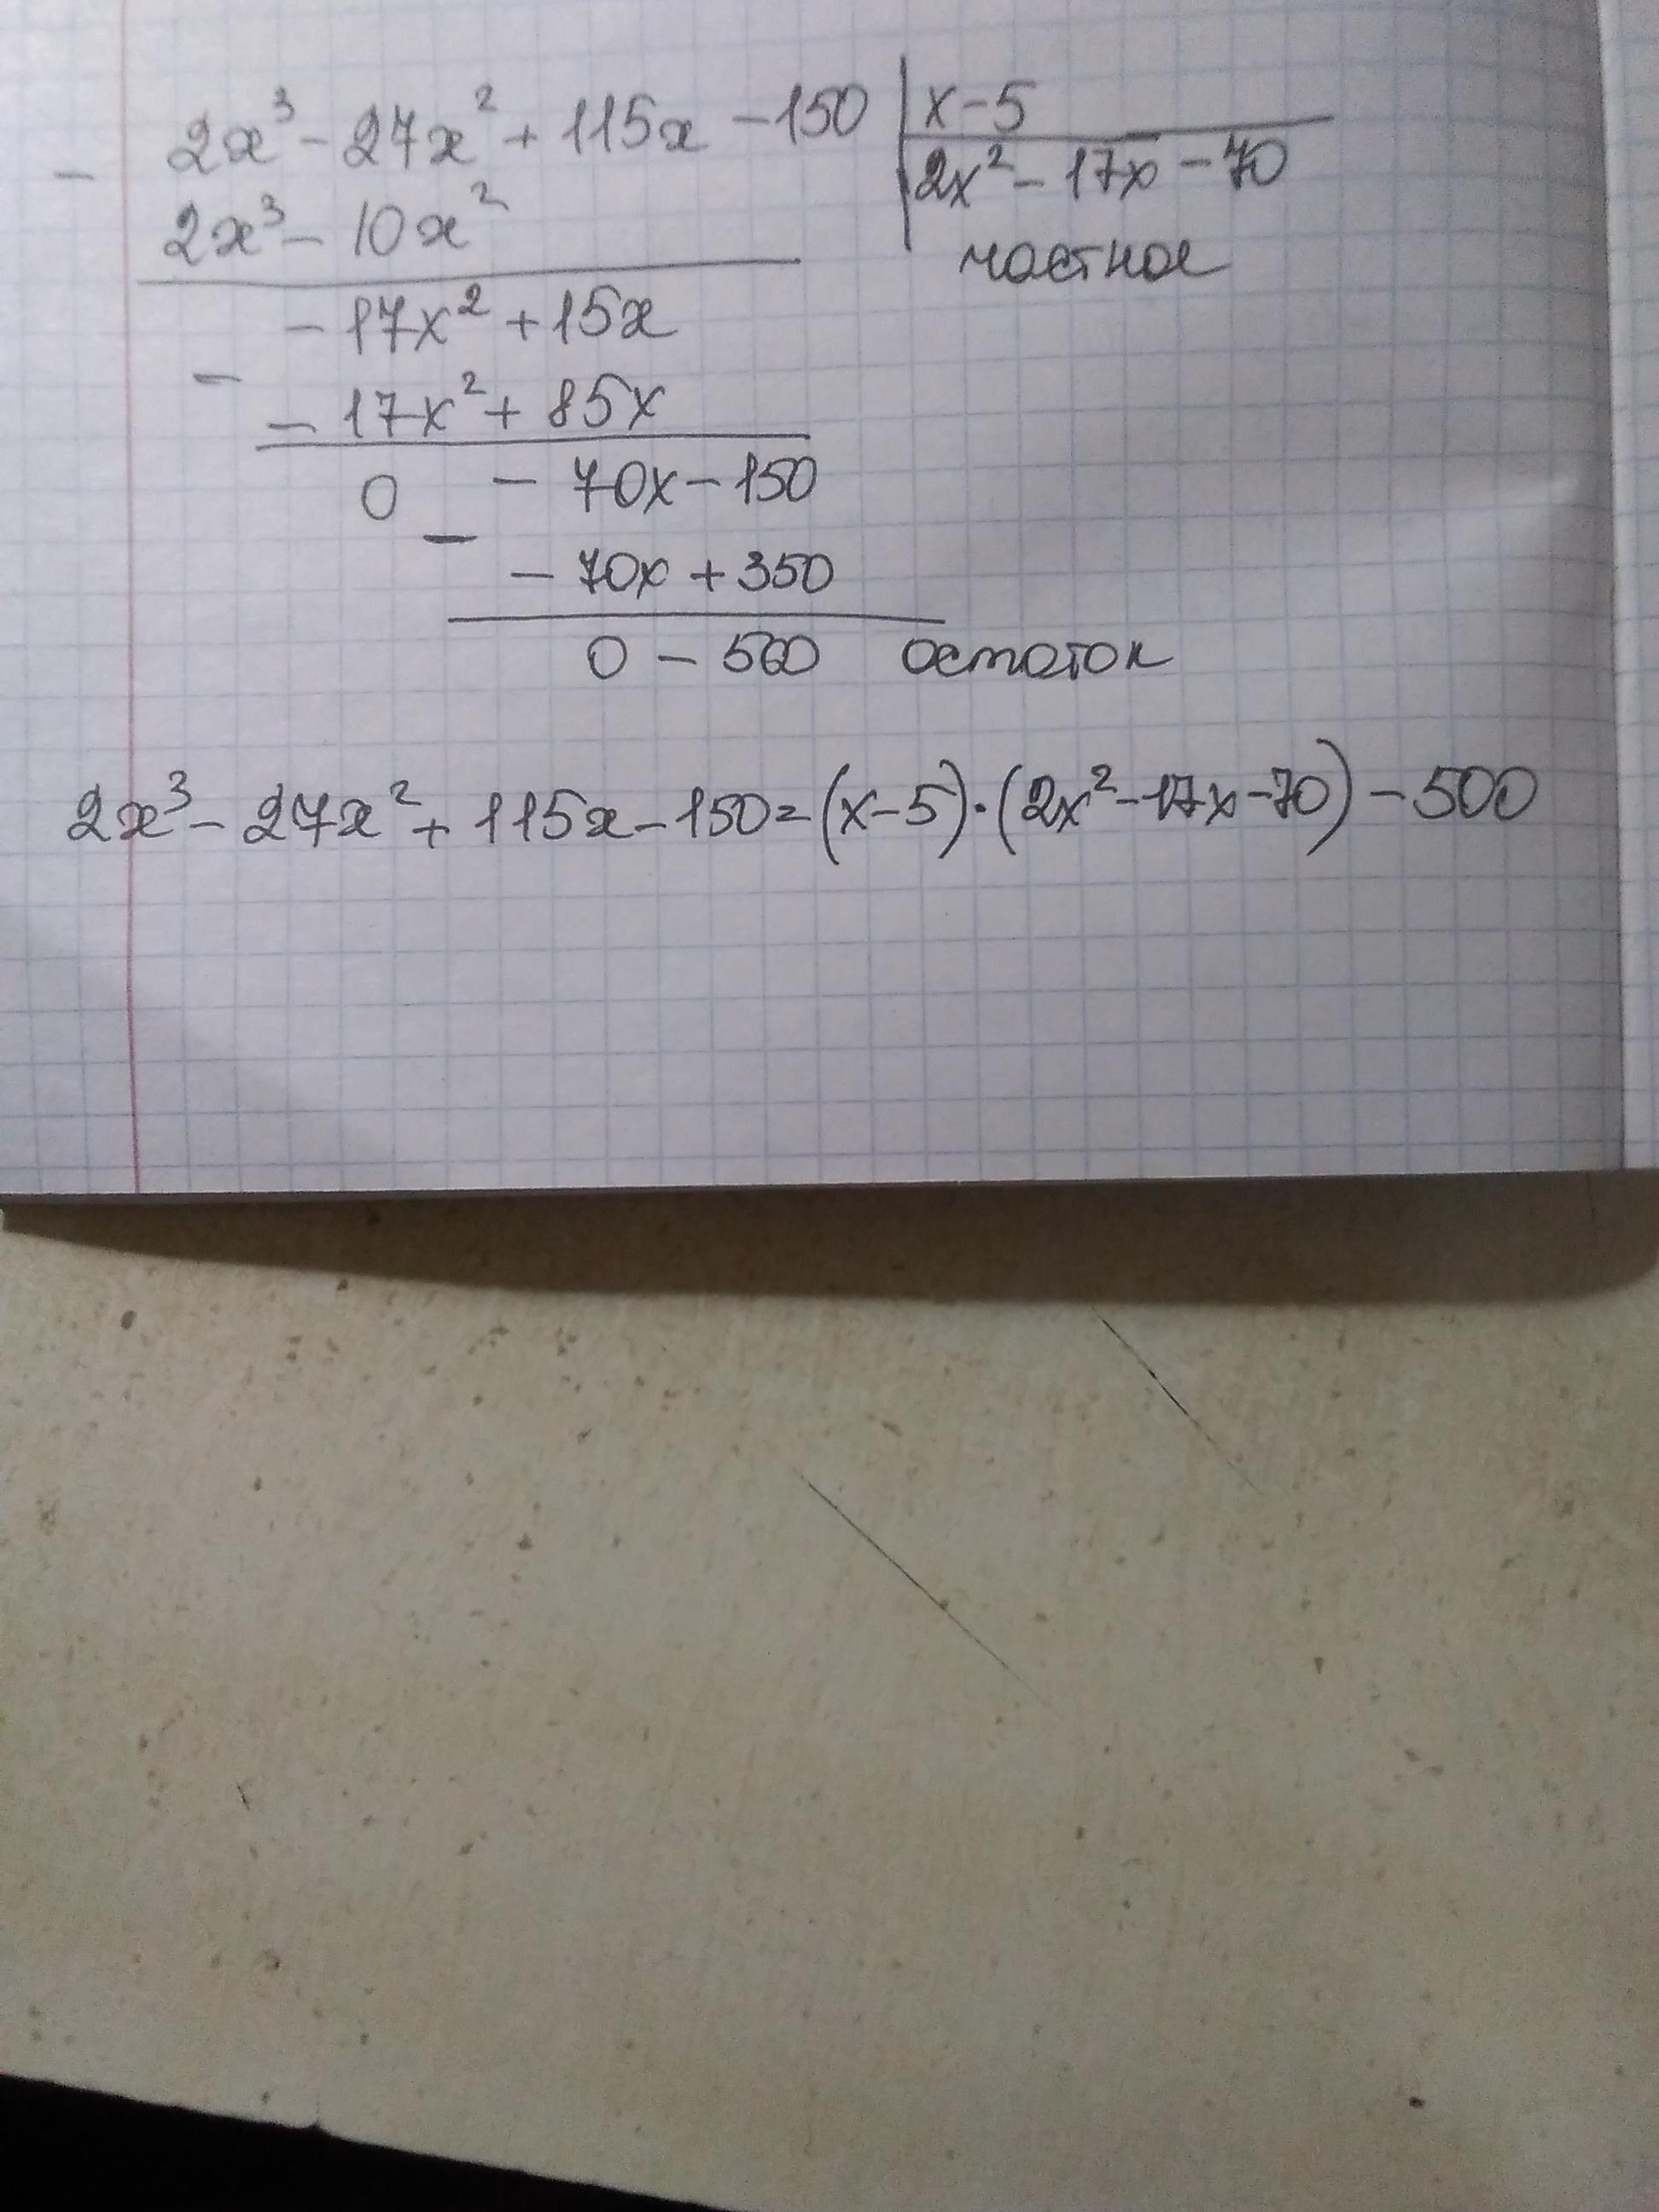 2x³ - 27x² + 115x - 150 | x - 5
- 2x³ - 10x² | 2x² - 17x - 70
частное
- 17x² + 15x
- - 17x² + 85x
0 - 70x - 150
- - 70x + 350
0 - 500 остаток
2x³ - 27x² + 115x - 150 = (x - 5) · (2x² - 17x - 70) - 500